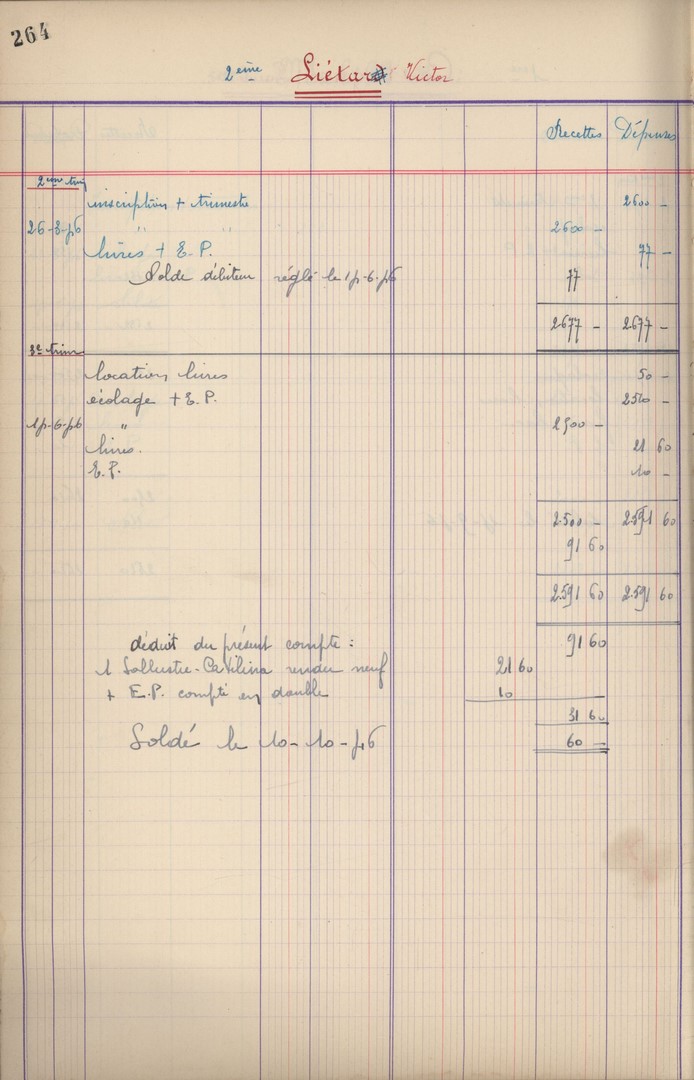 264
2ème Liétar Victor
Recettes Dépenses
2ème trim
inscription + trimestre 2600 -
26-3-46 " " 2600 -
livres + E.P. 77 -
Solde débiteur réglé le 14-6-46 77
2677 - 2677 -
3e trim
location livres 50 -
écolage + E.P. 2510 -
14-6-46 " 2500 -
livres. 21 60
E.P. 10 -
2.500 - 2.591 60
91 60
2.591 60 2.591 60
déduit du présent compte : 91 60
1 Salluste-Catilina rendu neuf 21 60
+ E.P. compté en double 10
31 60
Soldé le 10-10-46 60 -